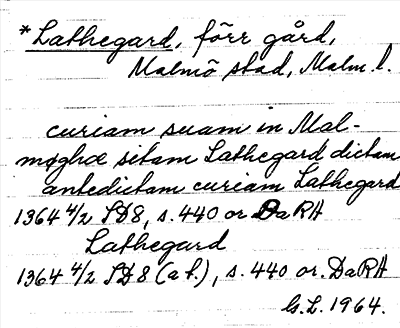 *Lathegard, förr gård,
Malmö stad, Malm. l.
curiam suam in Mal-
møghæ sitam Lathegard dictam
antedictam curiam Lathegard
1364 4/2 SD8, s. 440 or DaRA
Lathegard
1364 4/2 SD8 (a f.), s. 440 or. DaRA
G.L. 1964.